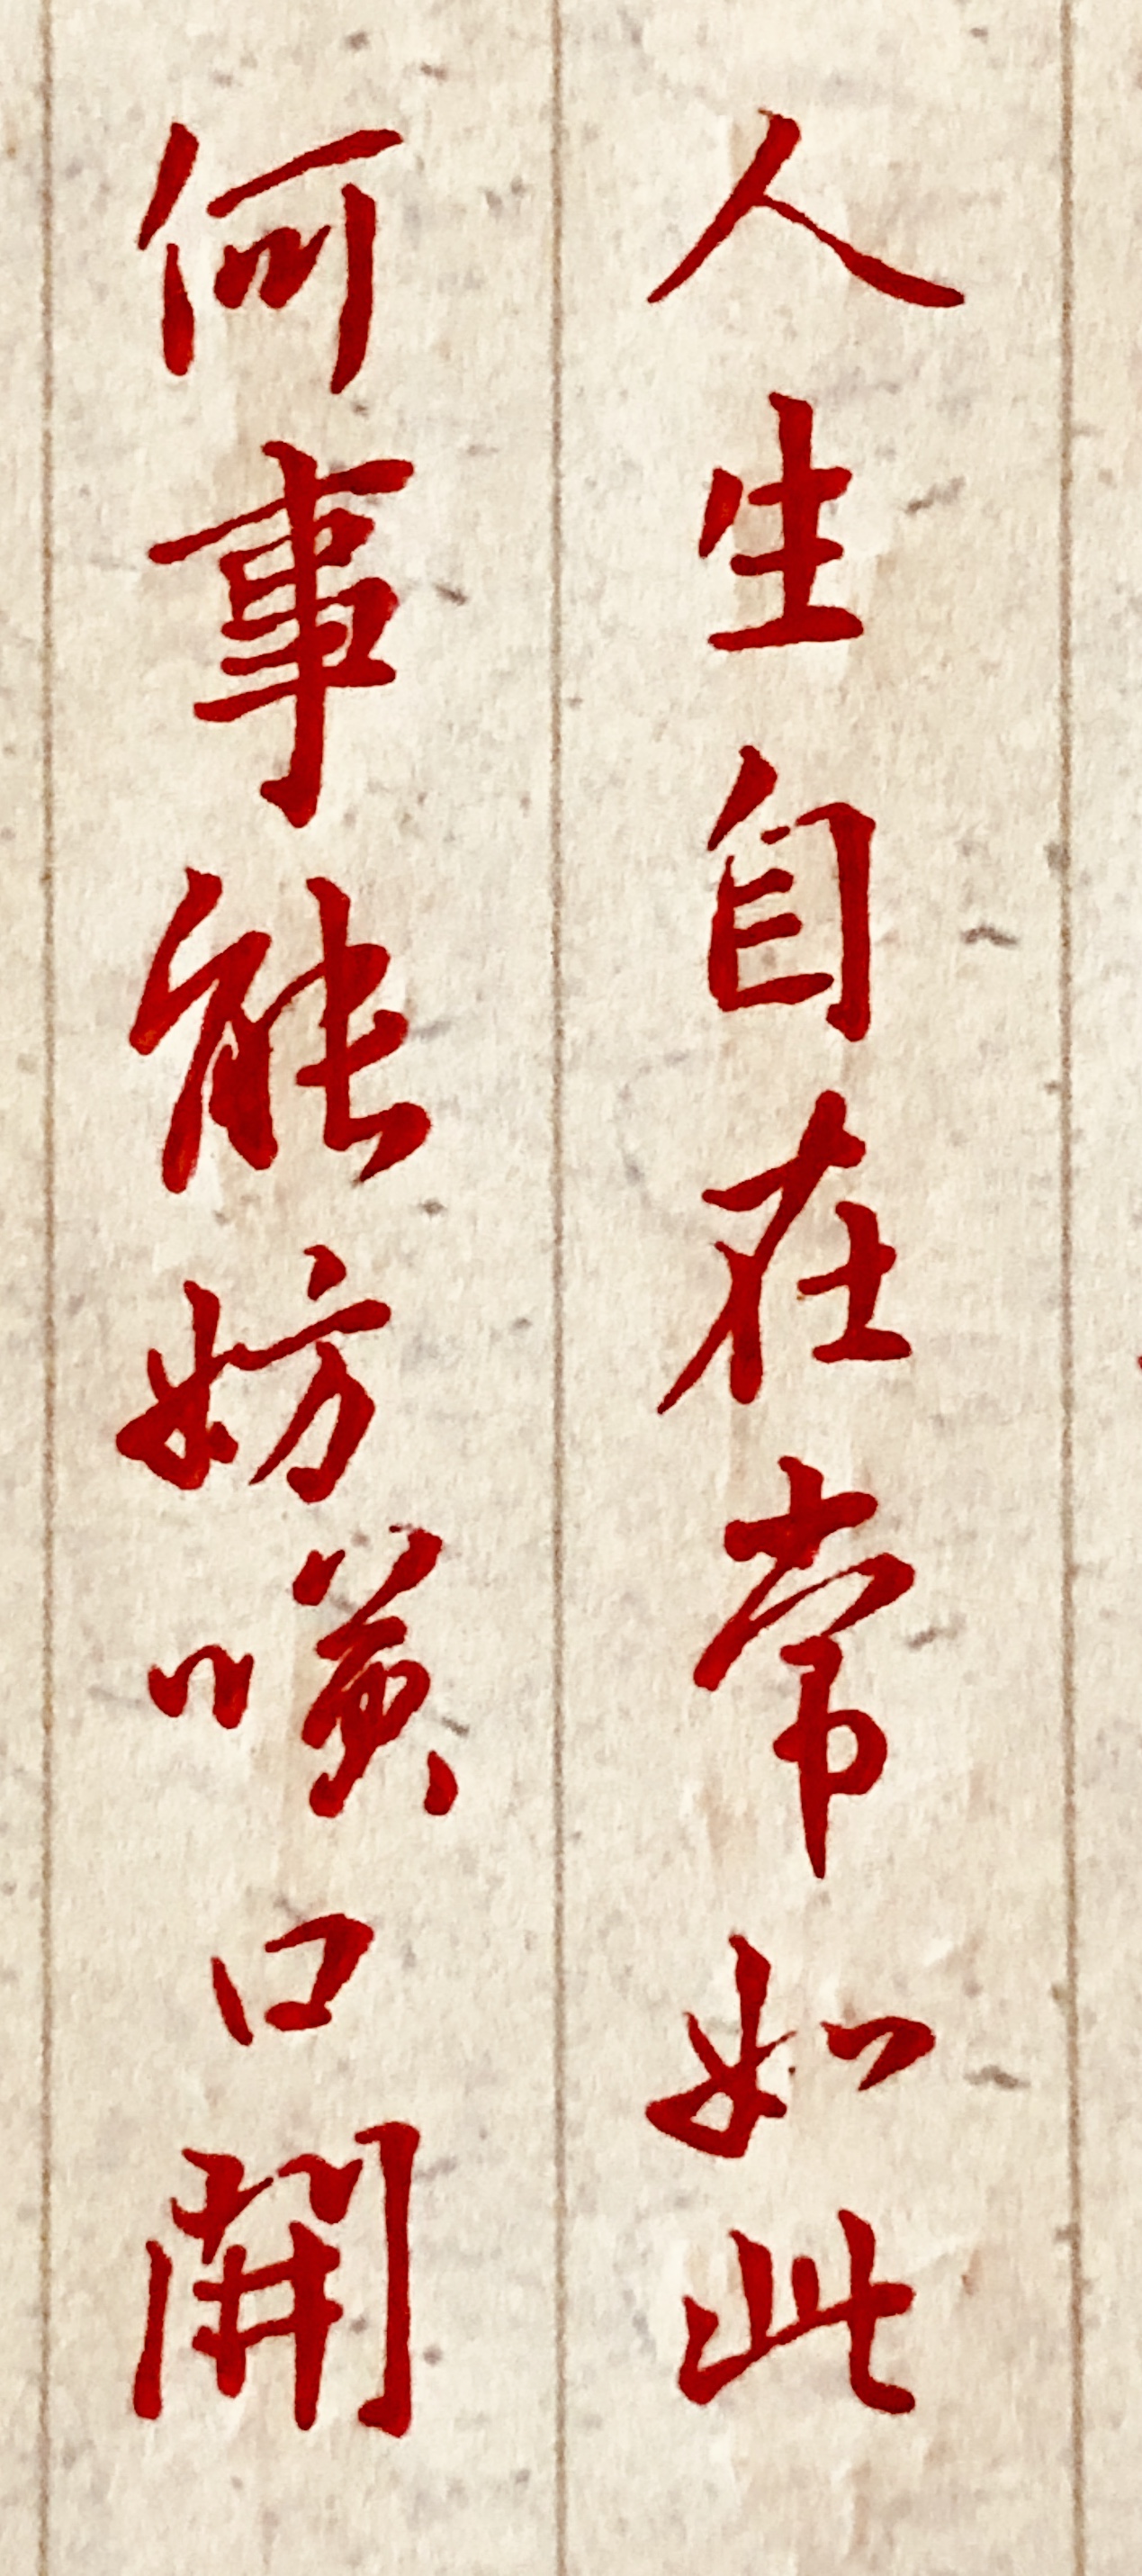 人生自在常如此
何事能妨噗口開